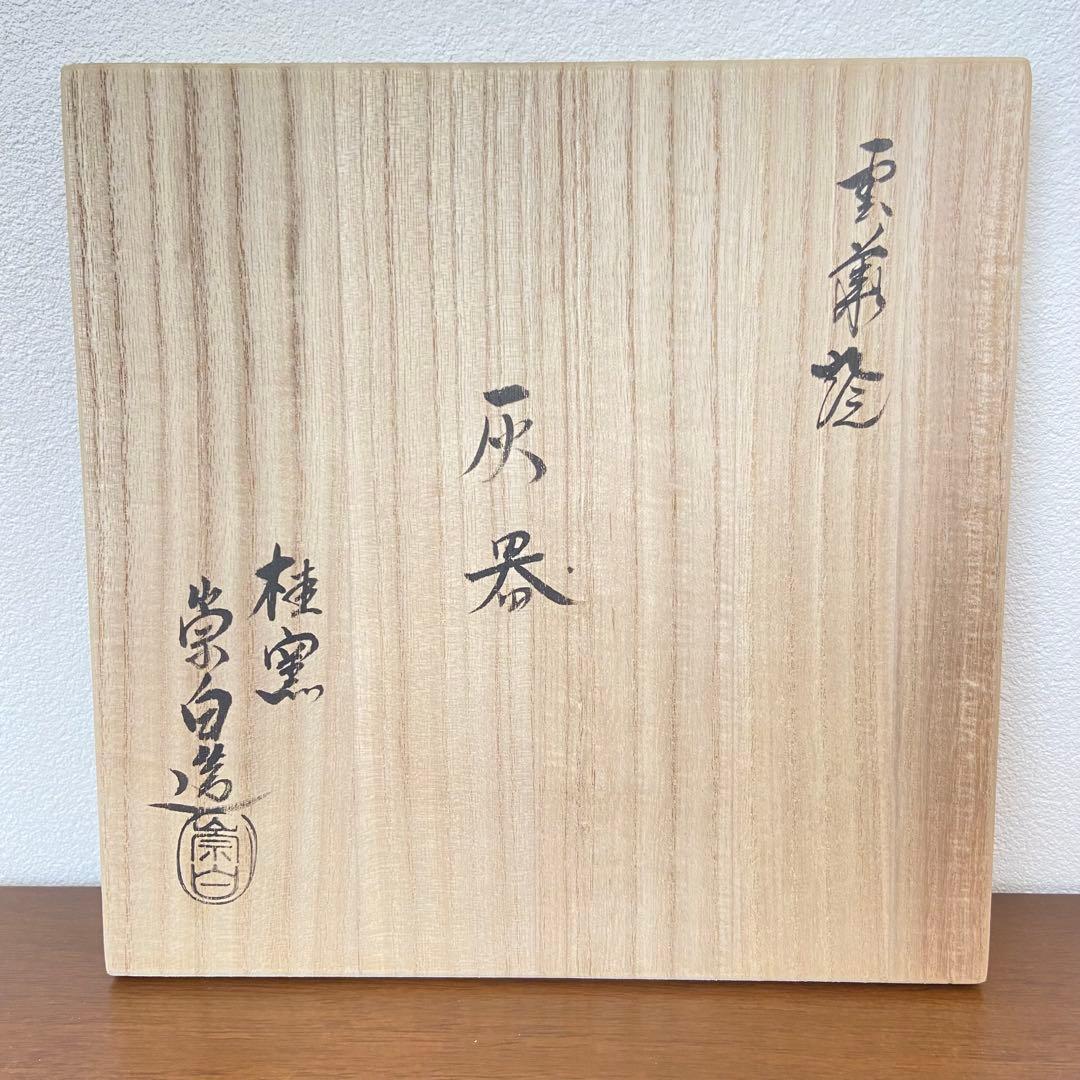 雲華焼
灰器
桂窯
崇白造
崇白